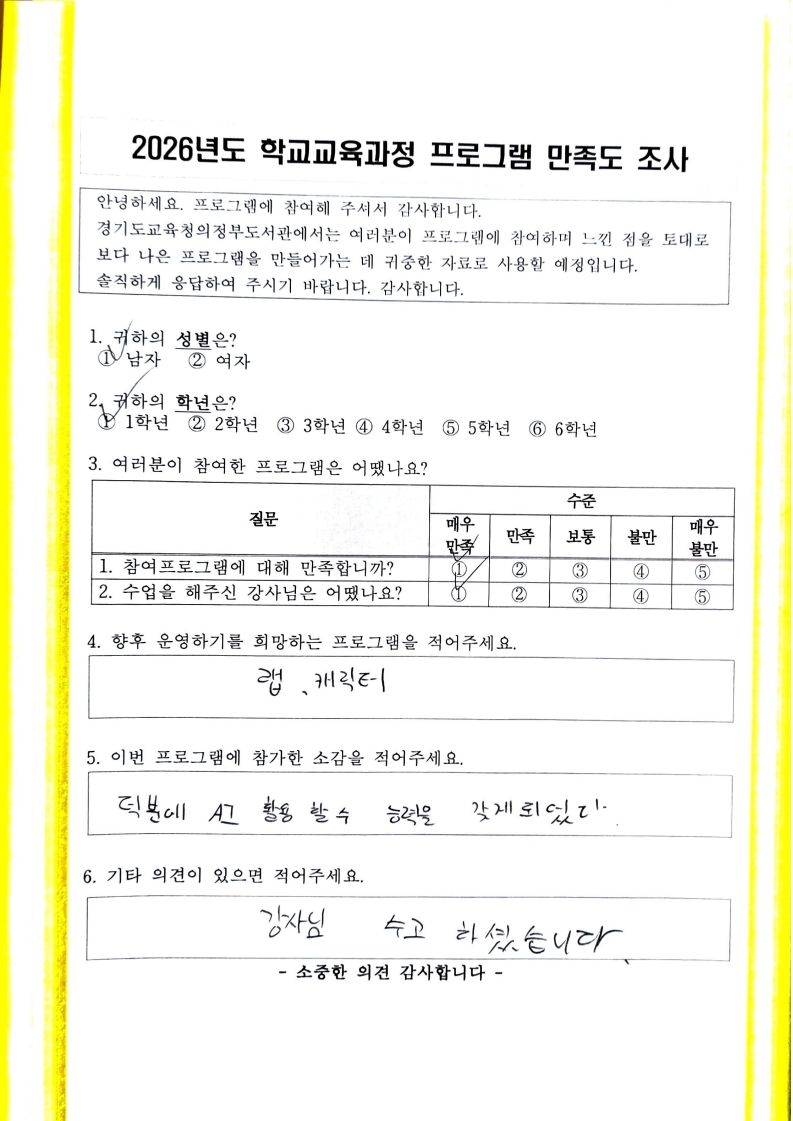 2026년도 학교교육과정 프로그램 만족도 조사
안녕하세요. 프로그램에 참여해 주셔서 감사합니다.
경기도교육청의정부도서관에서는 여러분이 프로그램에 참여하며 느낀 점을 토대로
보다 나은 프로그램을 만들어가는 데 귀중한 자료로 사용할 예정입니다.
솔직하게 응답하여 주시기 바랍니다. 감사합니다.
1. 귀하의 성별은?
① 남자 ② 여자
2. 귀하의 학년은?
① 1학년 ② 2학년 ③ 3학년 ④ 4학년 ⑤ 5학년 ⑥ 6학년
3. 여러분이 참여한 프로그램은 어땠나요?
질문 수준
매우 만족 만족 보통 불만 매우 불만
1. 참여프로그램에 대해 만족합니까? ① ② ③ ④ ⑤
2. 수업을 해주신 강사님은 어땠나요? ① ② ③ ④ ⑤
4. 향후 운영하기를 희망하는 프로그램을 적어주세요.
랩, 캐릭터
5. 이번 프로그램에 참가한 소감을 적어주세요.
덕분에 AI 활용 할 수 능력을 갖게되었다.
6. 기타 의견이 있으면 적어주세요.
강사님 수고 하셨습니다.
- 소중한 의견 감사합니다 -